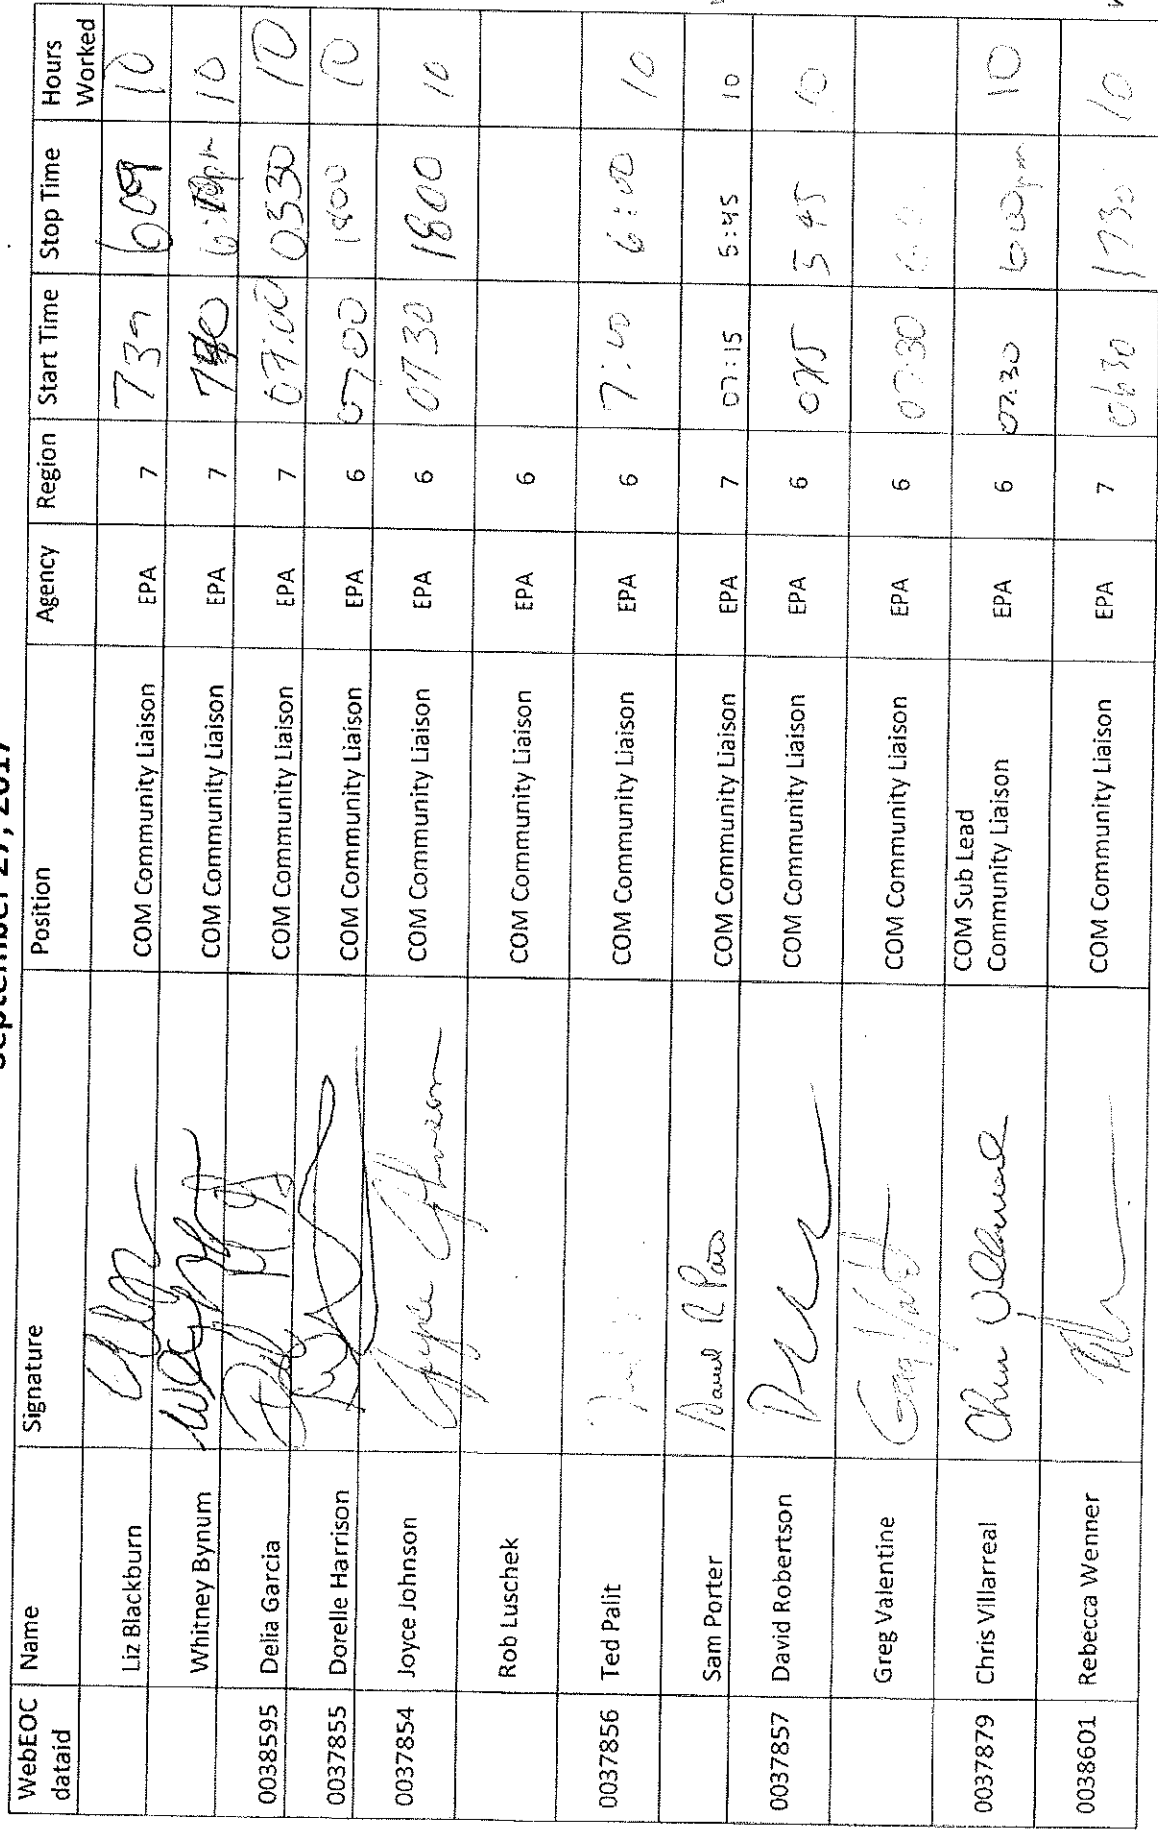 September 27, 2017
WebEOC dataid Name Signature Position Agency Region Start Time Stop Time Hours Worked
Liz Blackburn COM Community Liaison EPA 7 739 609 10
Whitney Bynum COM Community Liaison EPA 7 10
0038595 Delia Garcia COM Community Liaison EPA 7 07:00 0530 10
0037855 Dorelle Harrison COM Community Liaison EPA 6 0700 1800 10
0037854 Joyce Johnson Joyce Johnson COM Community Liaison EPA 6 0730 1800 10
Rob Luschek COM Community Liaison EPA 6
0037856 Ted Palit COM Community Liaison EPA 6 6:00 10
Sam Porter COM Community Liaison EPA 7 07:15 5:45 10
0037857 David Robertson COM Community Liaison EPA 6 0715 545 10
Greg Valentine COM Community Liaison EPA 6 07:30
0037879 Chris Villarreal Chris Villarreal COM Sub Lead
Community Liaison EPA 6 07:30 6:00pm 10
0038601 Rebecca Wenner COM Community Liaison EPA 7 0630 1730 10